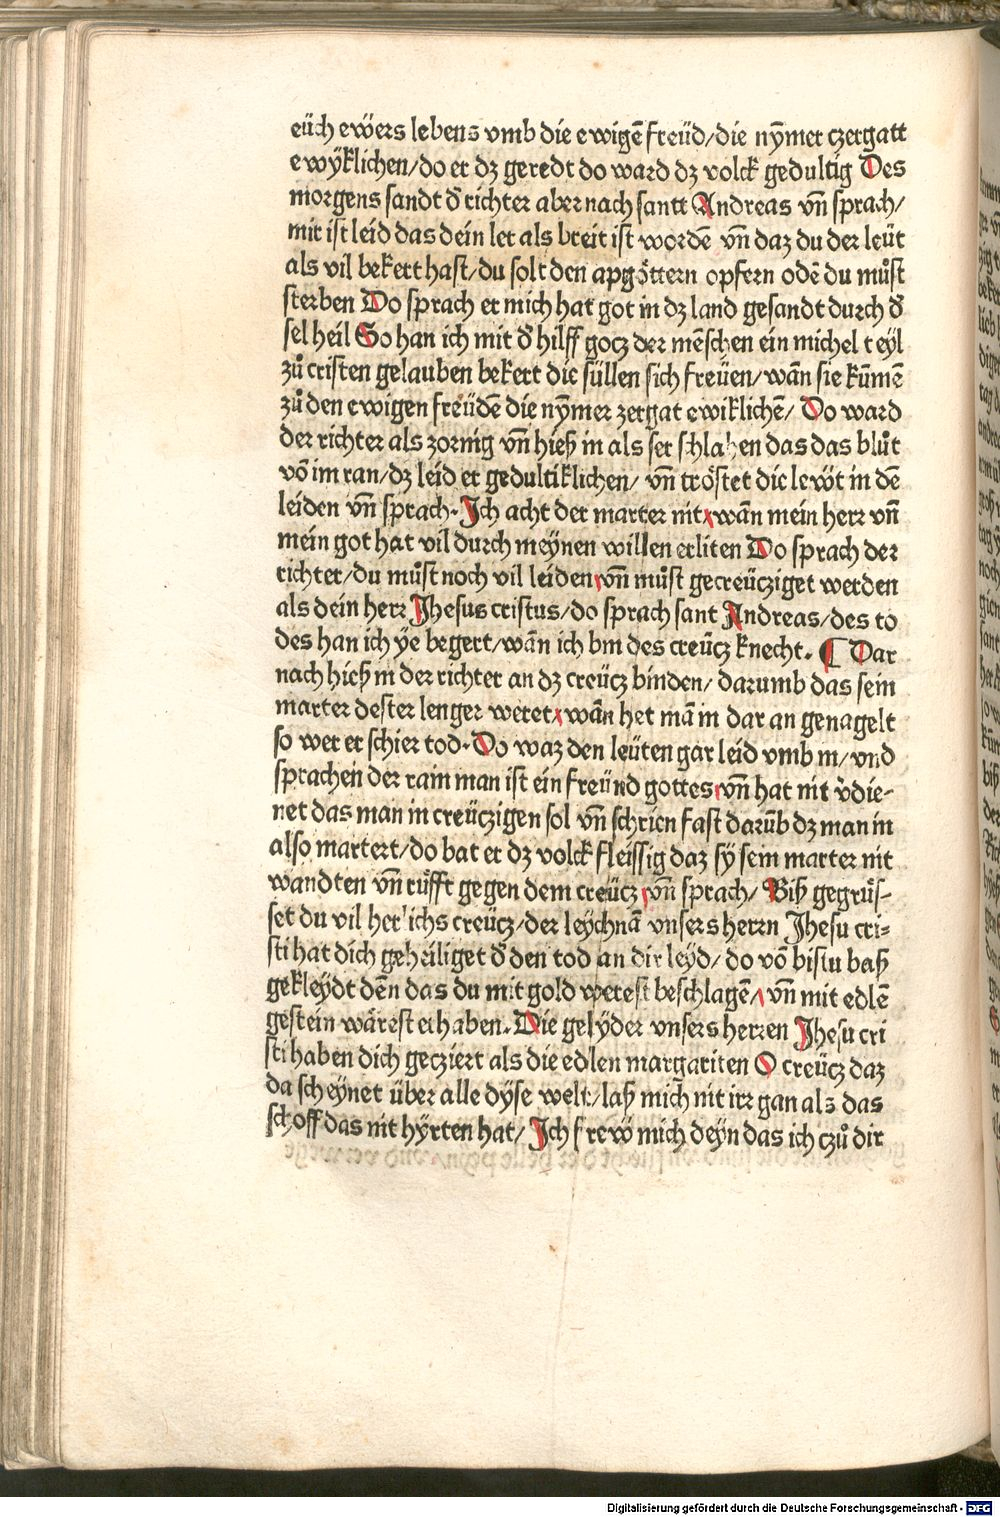 eüch ewers lebens vmb die ewigē freüd/die nȳmer czergatt
ewÿklichen/do er dz geredt do ward dz volck gedultig Des
morgens sandt d̄ richter aber nach santt Andreas vn̄ sprach/
mir ist leid das dein ler als breit ist wordē vn̄ daz du der leüt
als vil bekert hast/du solt den apgöttern opfern odē du muͦst
sterben Do sprach er mich hat got in dz land gesandt durch d̄
sel heil So han ich mit d̄ hilff gocz der mēschen ein michel teyl
zuͦ cristen gelauben bekert die süllen sich freüen/wān sie kūmē
zuͦ den ewigen freüdē die nȳmer zergat ewiklichē/ Do ward
der richter als zornig vn̄ hieß in als ser schlahen das das bluͦt
vō im ran/dz leid er gedultiklichen/ vn̄ tröstet die lewt in dē
leiden vn̄ sprach. Ich acht der marter nit wān mein herr vn̄
mein got hat vil durch meynen willen erliten Do sprach der
richter/du muͦst noch vil leiden vn̄ muͦst gecreücziget werden
als dein herr Jhesus cristus/do sprach sant Andreas/des to
des han ich ye begert/wān ich bin des creücz knecht. ¶ Dar
nach hieß in der richter an dz creücz binden/ darumb das sein
marter dester lenger weret wān het mā in dar an genagelt
so wer er schier tod. Do waz den leüten gar leid vmb in/vnd
sprachen der rain man ist ein freünd gottes vn̄ hat nit v̄die-
net das man in creüczigen sol vn̄ schrien fast darūb dz man in
also martert/do bat er dz volck fleissig daz sy sein marter nit
wandten vn̄ ruͤfft gegen dem creücz vn̄ sprach/ Biß gegruͤs-
set du vil herlichs creücz/der leychnā vnsers herrn Jhesu cri-
sti hat dich geheiliget d̄ den tod an dir leyd/ do vō bistu baß
gekleydt dēn das du mit gold werest beschlagē/ vn̄ mit edlē
gestein wärest erhaben. Die gelyder vnsers herren Jhesu cri
sti haben dich gecziert als die edlen margariten O creücz daz
da scheynet über alle dyse welt/laß mich nit irr gan als das
schoff das nit hyrten hat/ Ich frew mich deyn das ich czuͦ dir
Digitalisierung gefördert durch die Deutsche Forschungsgemeinschaft - DFG